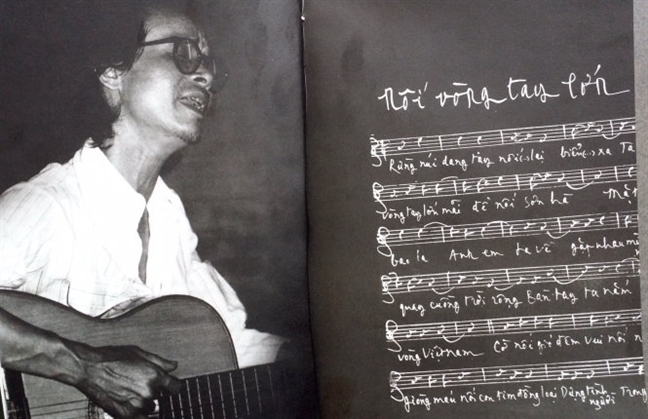 Nối vòng tay lớn
Rừng núi dang tay nối lại biển xa Ta
vòng tay lớn mãi để nối sơn hà Mặt
bao la Anh em ta về gặp nhau
quay cuồng trời rộng Bàn tay ta nắm
vòng Việt nam Cờ nối gió đêm vui nối
giòng máu nối con tim đồng loại Dựng tình Trong
người